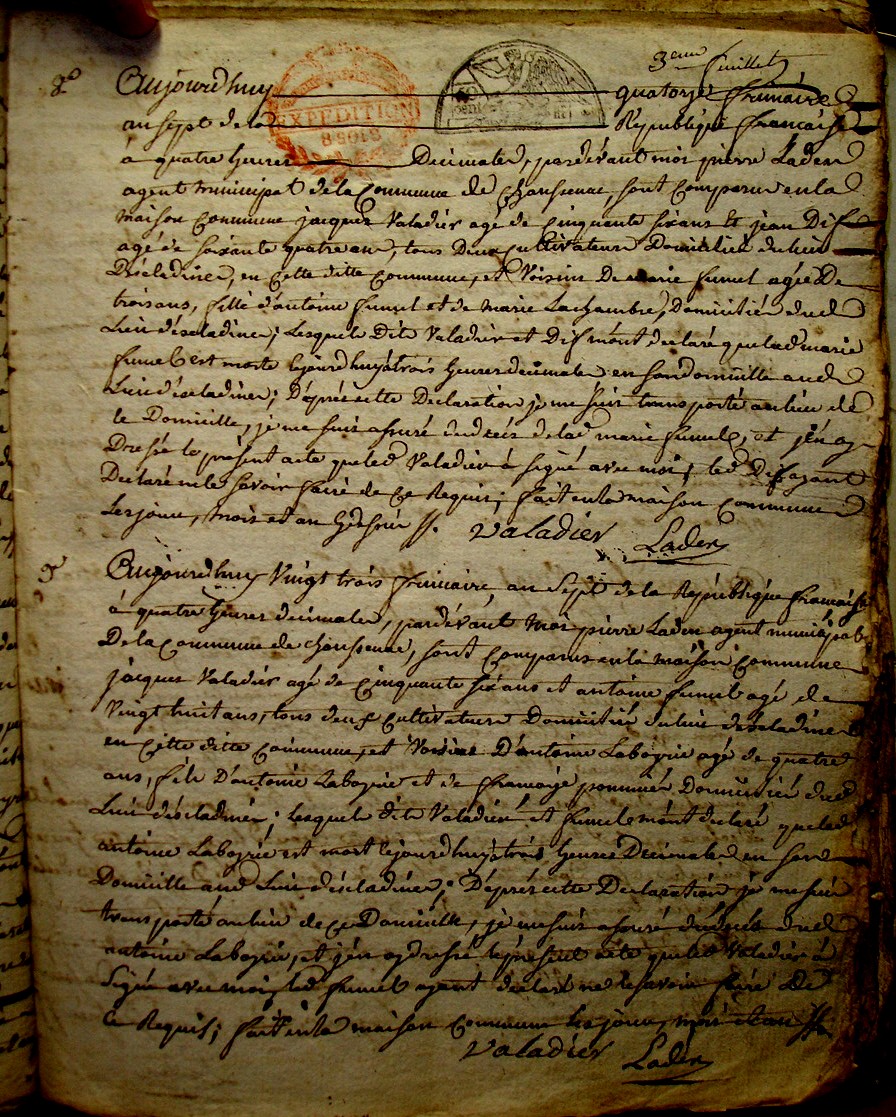 3eme feuillet
8e Aujourdhuy quatorze frimaire
EXPEDITION
an sept de la République francaise
à quatre heures Decimales, pardevant moi pierre Laden
agent municipal de la Commune de Chansenac, sont Comparu en la
maison Commune jacques Valadier agé de Cinquante six ans et jean Dif
agé de soixante quatre an, tous Deux Cultivateurs Domiciliés du lieu
Déscladines, en Cette ditte Commune, et Voisins De marie funel agée De
trois ans, fille d'antoine funel et de marie Lachambre, Domiciliés dud
Lieu déscladines; Lesquels Dits Valadier et Dif m'ont declaré que lad marie
funel est morte lejourdhuy à trois heures decimales en son domicille aud
Lieu déscladines; D'après cette Declaration je me suis transporté au lieu de
le Domicille, je me suis assuré du décés de lad marie funel, et j'én ay
Dressé le présent acte que led Valadier à signé avec moi, led Dif ayant
Declaré ne le savoir faire de Ce Requis; fait en la maison Commune
Les jour, mois et an que dessus
Valadier Laden
9e Aujourdhuy Vingt trois frimaire, an sept de la République francaise
à quatre heures decimales, pardevant moi pierre Laden agent municipal
De la Commune de Chansenac, sont Comparus en la maison Commune
jacques Valadier agé de Cinquante six ans et antoine funel agé de
Vingt huit ans, tous deux Cultivateurs Domiciliés du lieu déscladines
en Cette ditte Commune, et Voisins D'antoine Laboyrie agé de quatre
ans, fils D'antoine Laboyrie et de francoise pommier Domiciliés dud
Lieu déscladines; Lesquels dits Valadier et funel m'ont declaré que led
antoine Laboyrie est mort lejourdhuy à trois heures Decimales en son
Domicille aud Lieu déscladines; D'après cette Declaration je me suis
transporté au lieu de Ce Domicille, je me suis assuré du décés dud
antoine Laboyrie, et j'én ay dressé le présent acte que led Valadier à
signé avec moi, led funel ayant declaré ne le savoir faire De
Ce Requis; fait en la maison Commune les jour, mois et an
Valadier Laden